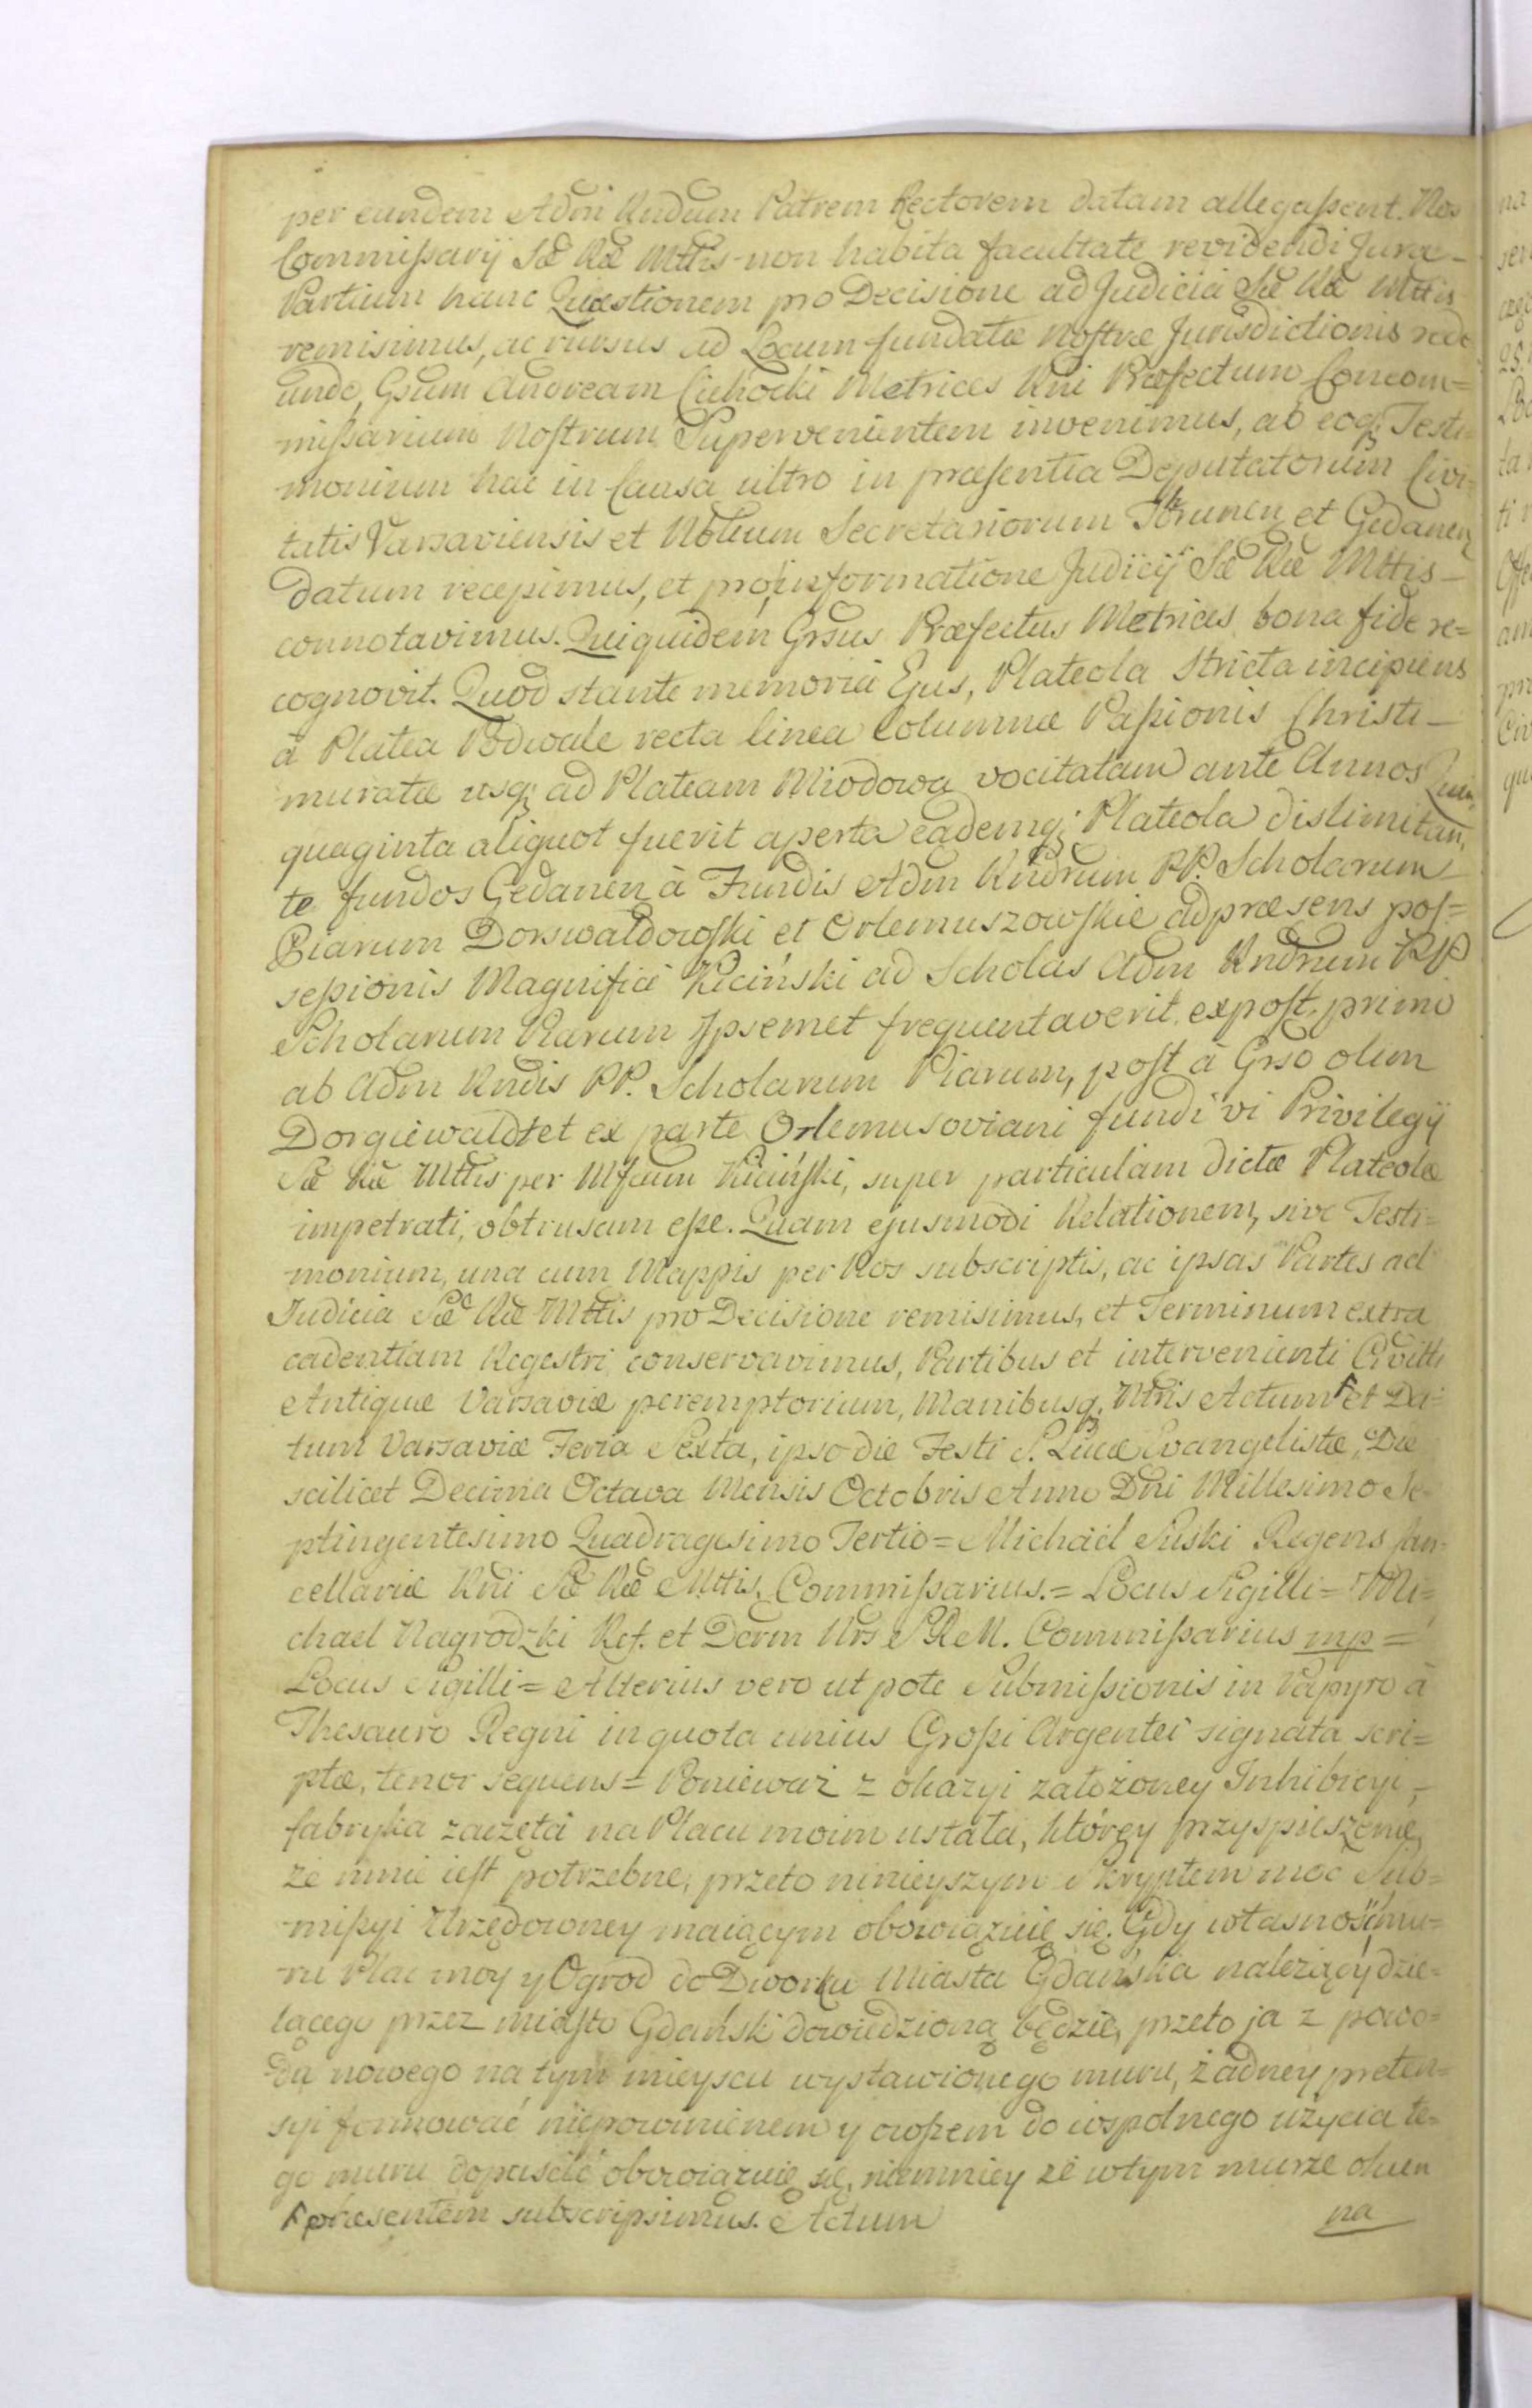 per eundem Adm Rndum Patrem Rectorem datam allegassent. Nos
Commissarij Sæ Ræ Mttis non habita facultate revidendi Jura
Partium hanc Quæstionem pro Decisione ad Judicia Sæ Ræ Mttis
remisimus, ac rursus ad Locum fundatæ nostræ Jurisdictionis rede
unde, Gsum Andream Cichocki Metrices Rni Præfectum Concom=
missarium Nostrum Supervenientem invenimus, ab eoq; Testi=
monium hac in Causa ultro in præsentia Deputatorum Civi=
tatis Varsaviensis et Nobilium Secretariorum Thrunen et Gedanen
datum recepimus, et pro informatione Judicij Sæ Ræ Mttis
connotavimus. Quiquidem Grsus Præfectus Metrices bona fide re=
cognovit. Quod stante memoria Ejus, Plateola Stricta incipiens
à Platea Podwale recta linea Columnæ Passionis Christi
muratæ usq; ad Plateam Miodowa vocitatam ante Annos Quin
quaginta aliquot fuerit aperta eademq; Plateola dislimitan,
te fundos Gedanen à Fundis Adm Rndrum PP. Scholarum
Piarum Dorswaldowski et Orlemuszowskie adpræsens pos=
sessionis Magnifici Kiciński ad Scholas Adm Rndrum PP
Scholarum Piarum Ipsemet frequentaverit. expost primo
ab Adm Rndis PP. Scholarum Piarum, post à Grso olim
Dorgiewaldt et ex parte Orlemusoviani fundi vi Privilegij
Sæ Ræ Mttis per Mfcum Kiciński, super particulam dictæ Plateolæ
impetrati, obtrusam esse. Quam ejusmodi Relationem, sive Testi=
monium, una cum Mappis per Nos subscriptis, ac ipsas Partes ad
Judicia Sæ Ræ Mttis pro Decisione remisimus, et Terminum extra
cadentiam Regestri conservavimus, Partibus et intervenienti Civitti
Antiquæ Varsaviæ peremptorium, Manibusq; Ntris Actum et Da=
tum Varsaviæ Feria Sexta, ipso die Festi S. Lucæ Evangelistæ, Die
scilicet Decima Octava Mensis Octobris Anno Dni Millesimo Se=
ptingentesimo Quadragesimo Tertio = Michaël Suski Regens Can=
cellariæ Rni Sæ Ræ Mttis Commissarius. = Locus Sigilli = Mi=
chael Nagrodzki Ref. et Derm Nrs S R M. Commissarius mp =
Locus Sigilli = Alterius vero ut pote Submissionis in Papyro à
Thesauro Regni in quota unius Grossi Argentei signata scri=
ptæ, tenor sequens = Ponieważ z okazyi założoney Inhibicyi,
fabryka zaczęta na Placu moim ustała, którey przyspieszenie,
że mnie iest potrzebne, przeto ninieyszym Skryptem moc Sub=
missyi Urzędowney maiącym obowiązuię się. Gdy własność mu=
ru Plac moy y Ogrod do Dworku Miasta Gdańska należący dzie=
lącego przez miasto Gdańsk dowiedzioną będzie, przeto ja z powo=
du nowego na tym mieyscu wystawionego muru, żadney preten=
syi formować niepowinienem y owszem do wspolnego użycia te=
go muru dopuścić obowiązuię się, niemniey że wtym murze okien
præsentem subscripsimus. Actum
na